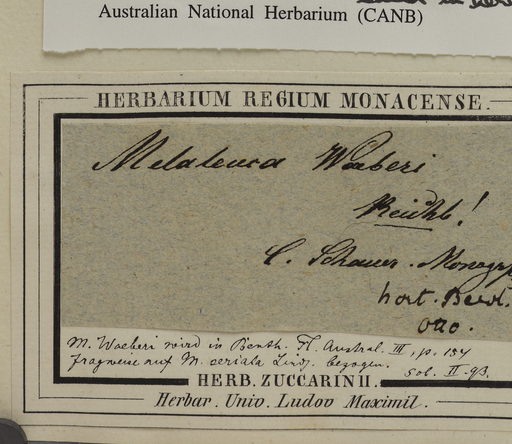 Australian National Herbarium (CANB)
HERBARIUM REGIUM MONACENSE.
Melaleuca Waeberi
Reichb!
C. Schauer. Monogr
hort. Berol.
Otto.
M. Waeberi wird in Benth. Fl. Austral. III, p. 154
fragweise auf M. seriata Lindj. bezogen.
Sol. II. 93.
HERB. ZUCCARINII.
Herbar. Univ. Ludov Maximil.